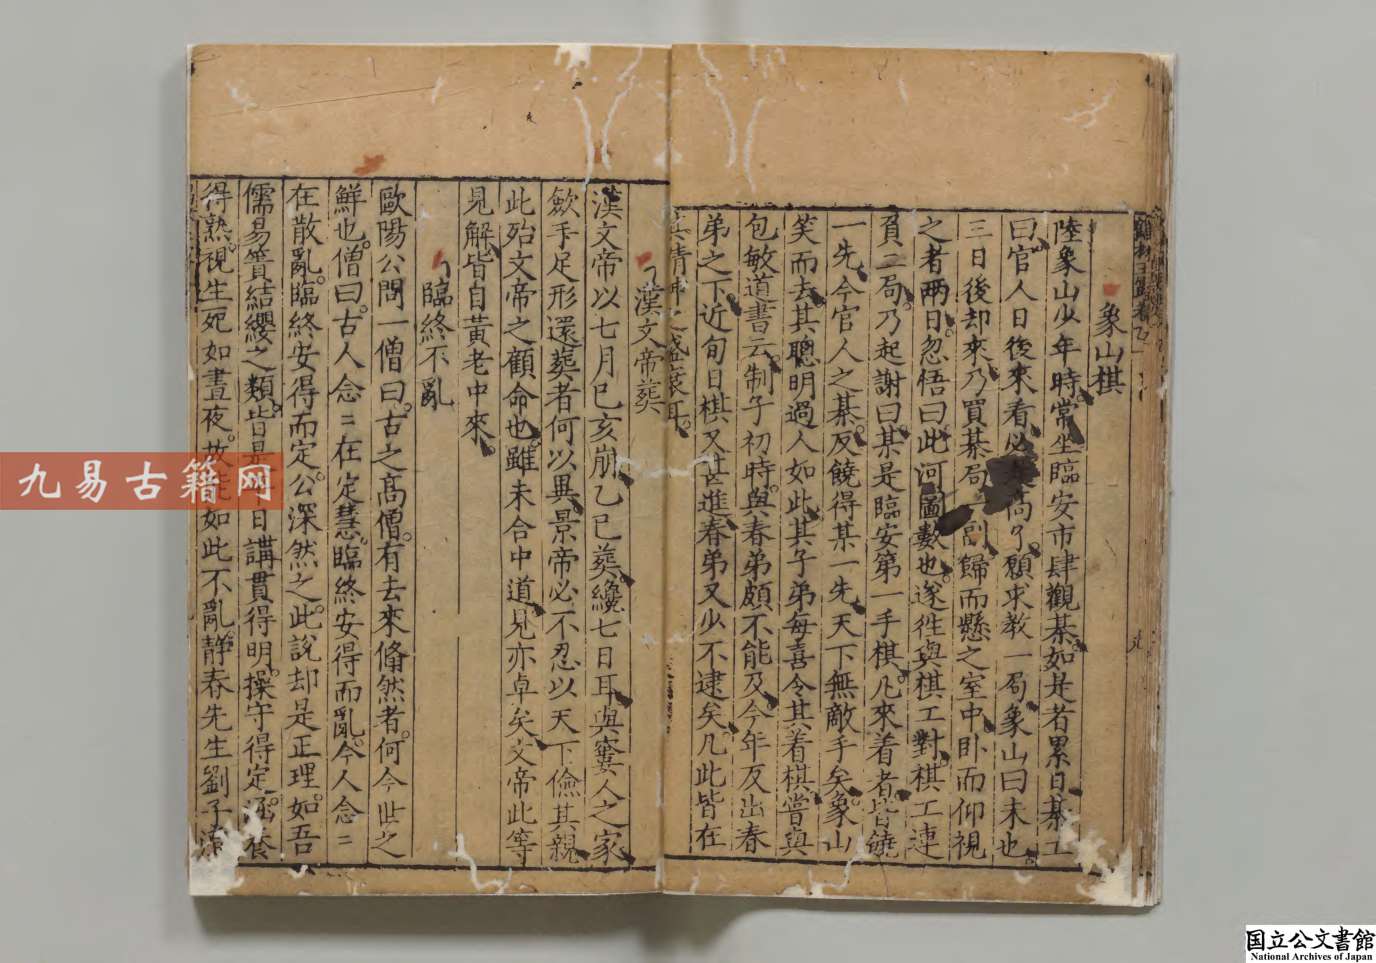 象山棋
陸象山少年時常坐臨安市肆觀棊如是者累日棊工
曰官人日後來看必是高手願求教一局象山曰未也
三日後却來乃買棊局一副歸而懸之室中卧而仰視
之者兩日忽悟曰此河圖數也遂徃與棋工對棋工連
負二局乃起謝曰某是臨安第一手棋凡來着者皆饒
一先今官人之棊反饒得某一先天下無敵手矣象山
笑而去其聰明過人如此其子弟每喜令其着棋嘗與
包敏道書云制子初時與春弟頗不能及今年反出春
弟之下近旬日棋又甚進春弟又少不逮矣凡此皆在
其精神之盛衰耳
漢文帝葬
漢文帝以七月己亥崩乙巳葬纔七日耳與窶人之家
歛手足形還葬者何以異景帝必不忍以天下儉其親
此殆文帝之顧命也雖未合中道見亦卓矣文帝此等
見解皆自黃老中來
臨終不亂
歐陽公問一僧曰古之高僧有去來翛然者何今世之
鮮也僧曰古人念〻在定慧臨終安得而亂今人念〻
在散亂臨終安得而定公深然之此說却是正理如吾
儒易簀結纓之類皆是日講貫得明操守得定涵養
得熟視生死如晝夜故能如此不亂靜春先生劉子澄
九易古籍网
国立公文書館
National Archives of Japan